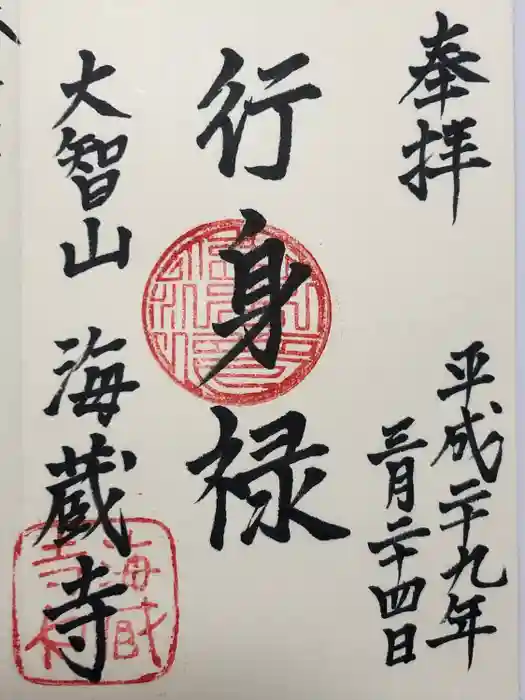 奉拝
平成二十九年
三月二十四日
行身禄
大智山 海蔵寺